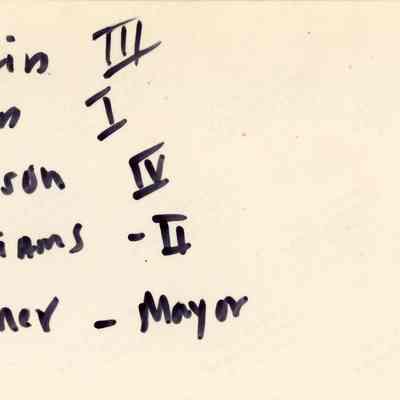 in III
n I
son IV
iams - II
ner - Mayor